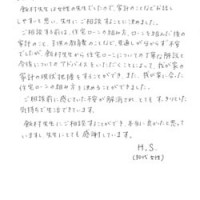 鈴村先生は女性の先生でしたので、家計のことなどお話し
しやすいと思い、先生にご相談することに決めました。
ご相談する前は、住宅ローンの組み方、ローンを組んだ後の
家計のこと、老後の
でしたが、鈴村先生から住宅ローンについての丁寧な説明と
今後についてのアドバイスをいただくことによって、我が家の
家計の現状把握をすることができ、また、我が家に合った
住宅ローンの組み方を決めることができました。
ご相談前に感じていた不安が解消されて、とても すっきりした
気持ちで生活できています。
鈴村先生にご相談することができ、本当に良かったと思って
います。先生にとても感謝しています。
M.S.
(30代 女性)